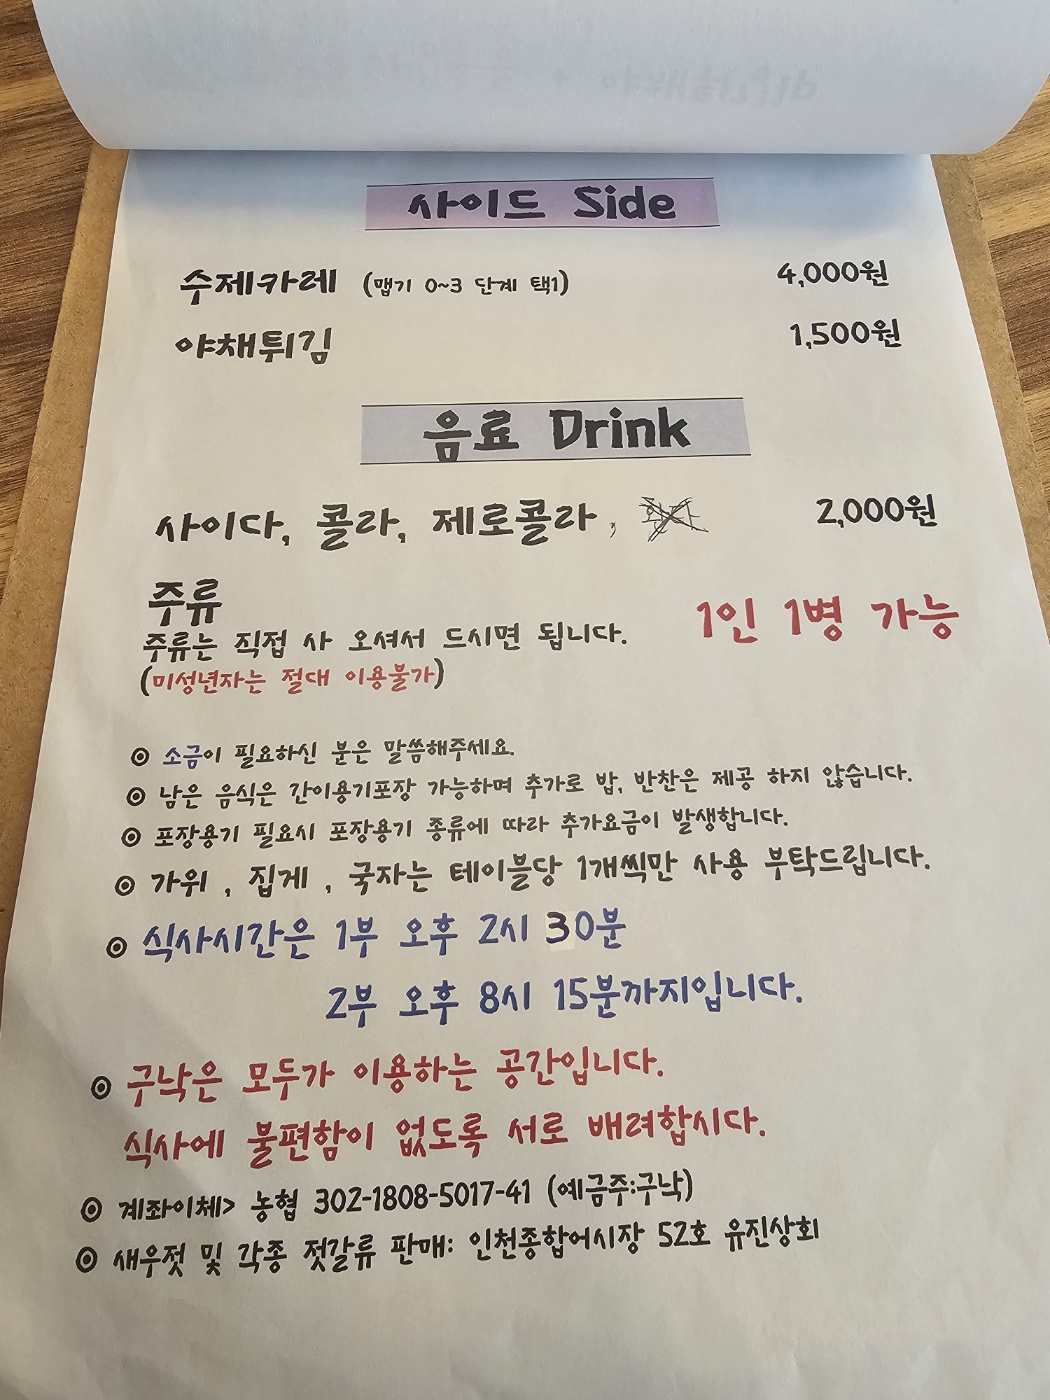 사이드 Side
수제카레 (맵기 0~3 단계 택1) 4,000원
야채튀김 1,500원
음료 Drink
사이다, 콜라, 제로콜라, 2,000원
주류
주류는 직접 사 오셔서 드시면 됩니다. 1인 1병 가능
(미성년자는 절대 이용불가)
◎ 소금이 필요하신 분은 말씀해주세요.
◎ 남은 음식은 간이용기포장 가능하며 추가로 밥, 반찬은 제공 하지 않습니다.
◎ 포장용기 필요시 포장용기 종류에 따라 추가요금이 발생합니다.
◎ 가위 , 집게 , 국자는 테이블당 1개씩만 사용 부탁드립니다.
◎ 식사시간은 1부 오후 2시 30분
2부 오후 8시 15분까지입니다.
◎ 구낙은 모두가 이용하는 공간입니다.
식사에 불편함이 없도록 서로 배려합시다.
◎ 계좌이체> 농협 302-1808-5017-41 (예금주:구낙)
◎ 새우젓 및 각종 젓갈류 판매: 인천종합어시장 52호 유진상회